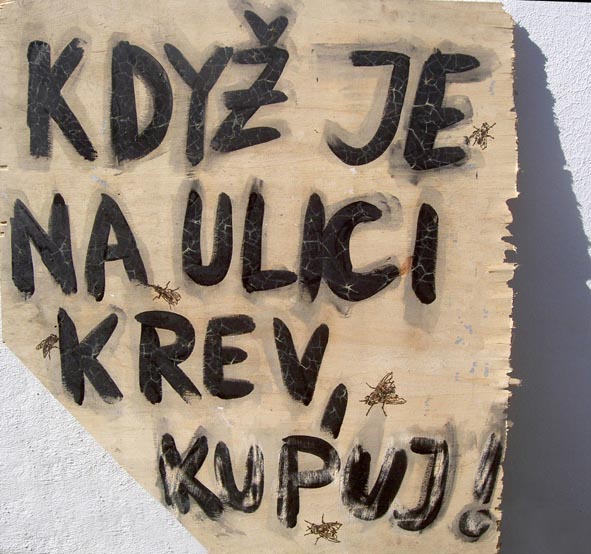 KDYŽ JE
NA ULICI
KREV,
KUPUJ!